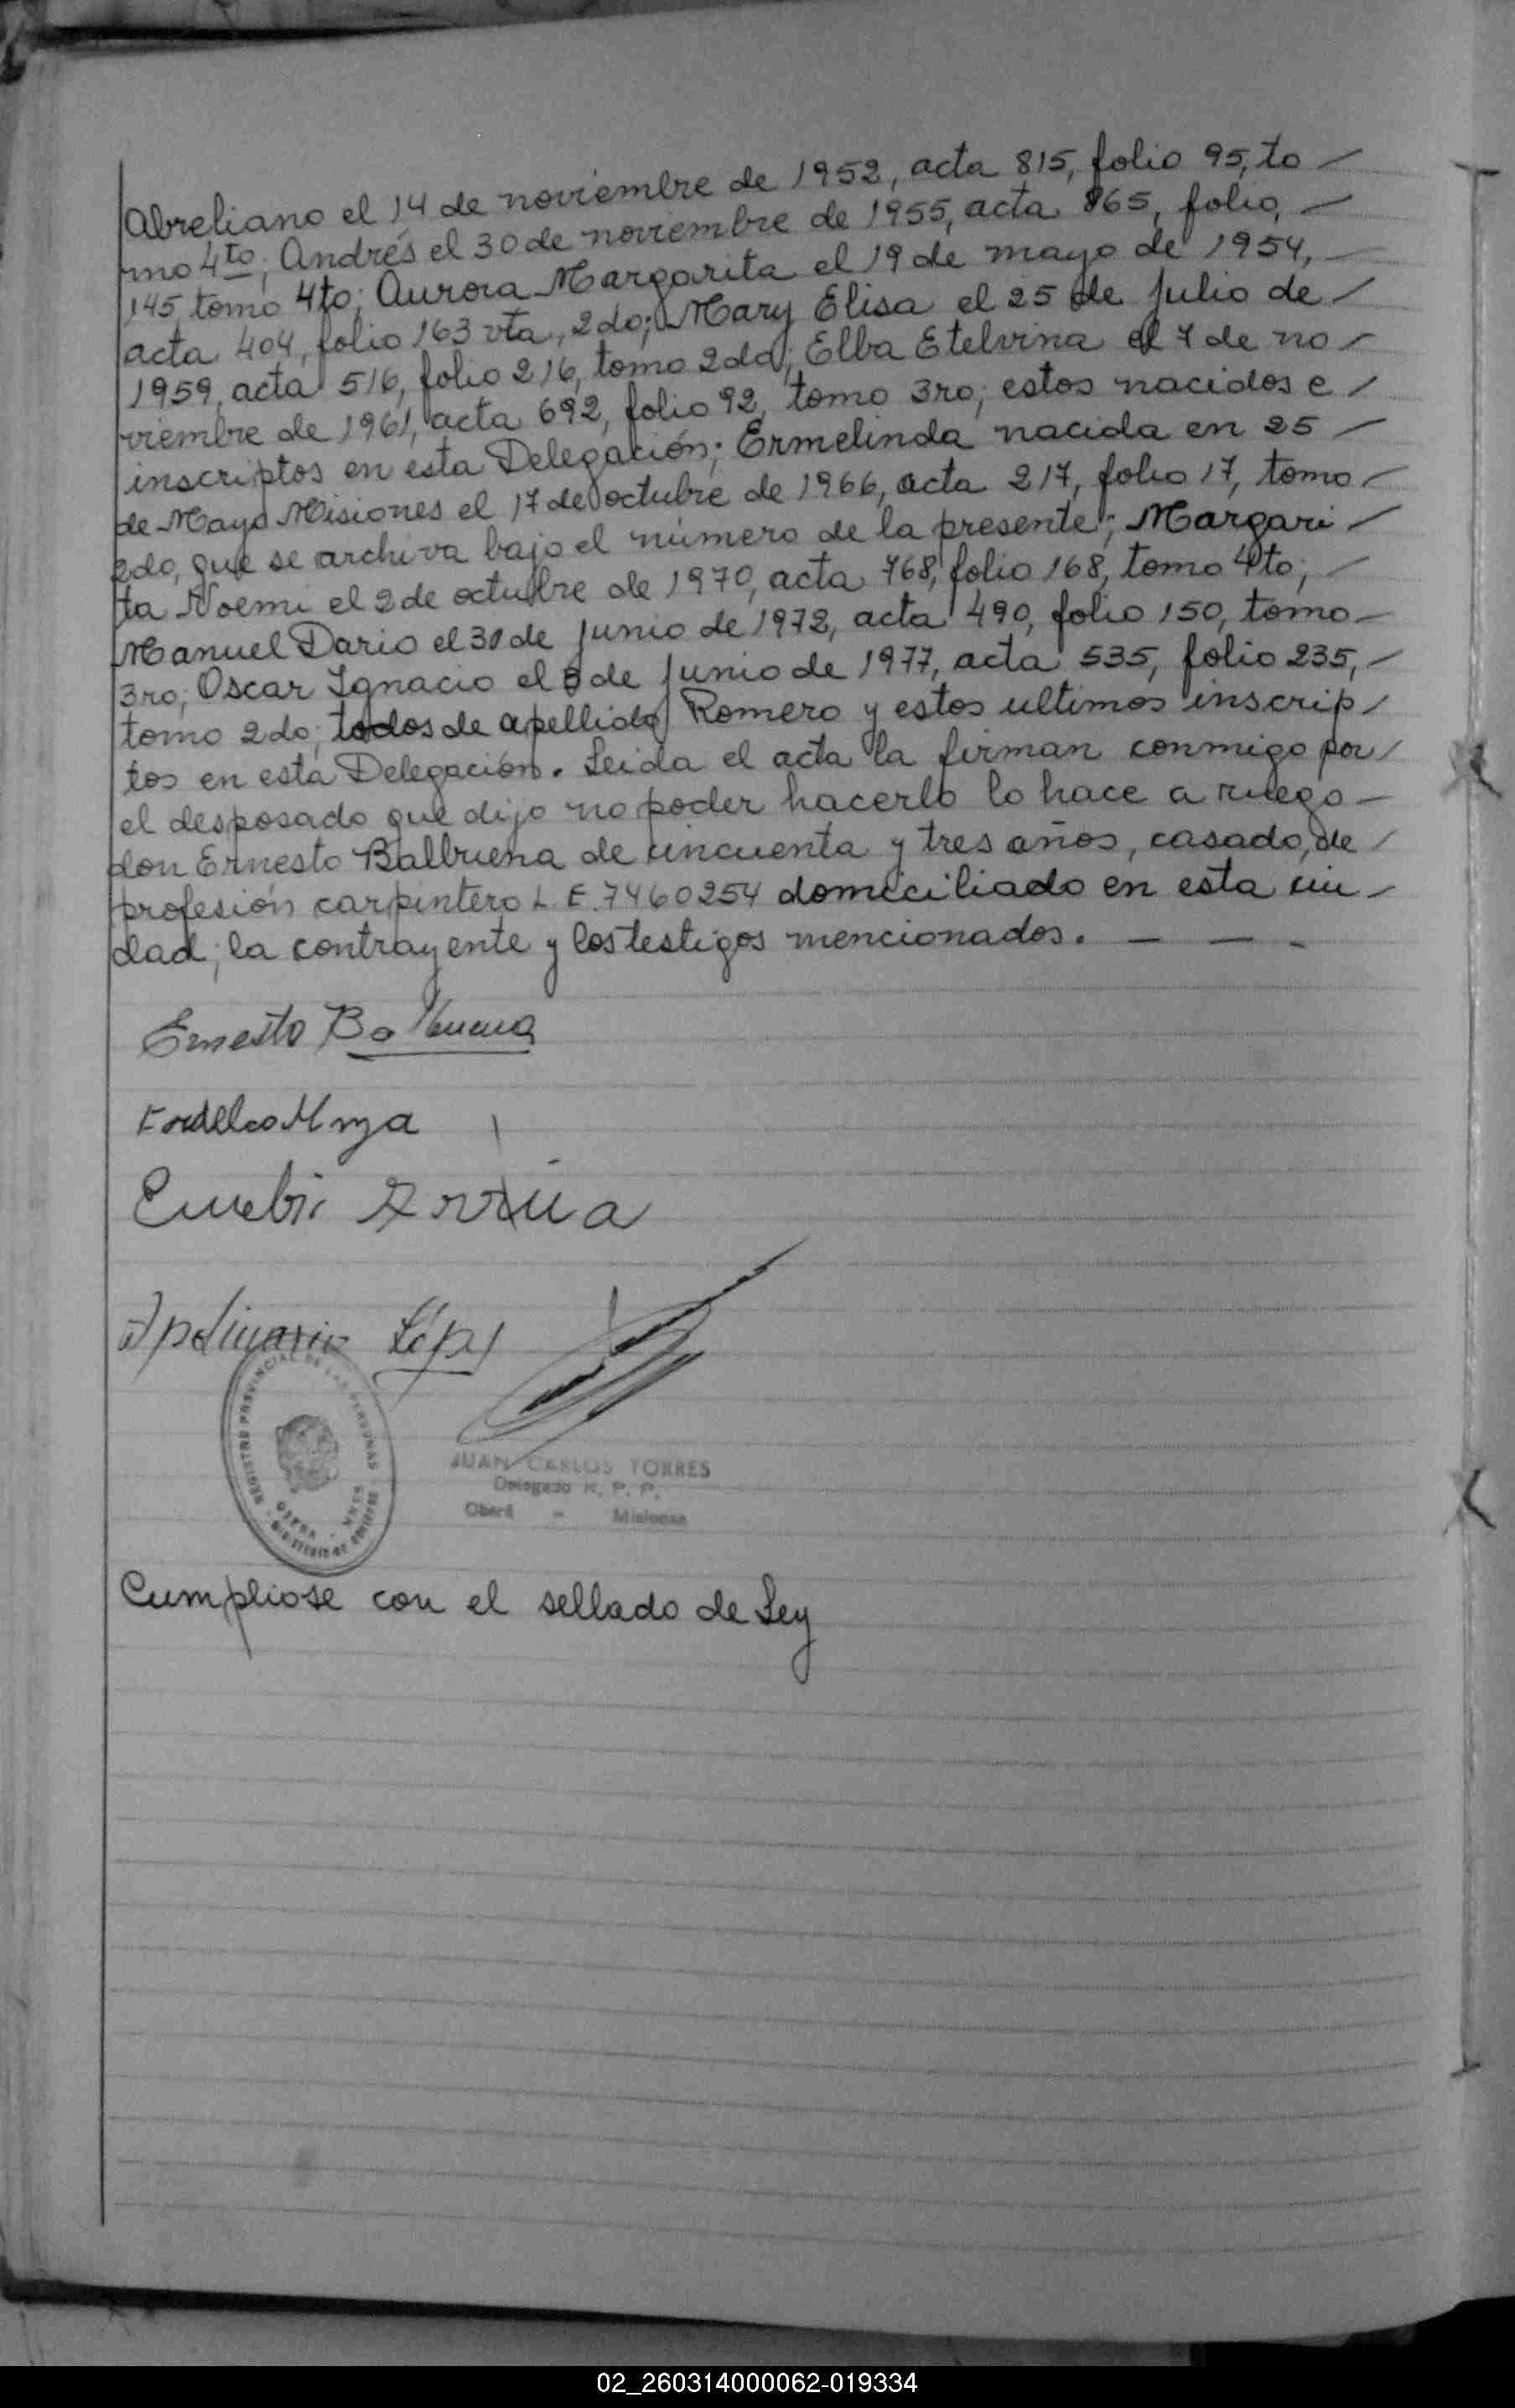 Abreliano el 14 de noviembre de 1952, acta 815, folio 95, to
mo 4to; Andrés el 30 de noviembre de 1955, acta 865, folio,
145 tomo 4to; Aurora Margarita el 19 de mayo de 1954,
acta 404, folio 163 vta, 2do; Mary Elisa el 25 de Julio de
1959, acta 516, folio 216, tomo 2do; Elba Etelvina el 7 de no
viembre de 1961, acta 692, folio 92, tomo 3ro; estos nacidos e
inscriptos en esta Delegación; Ermelinda nacida en 25
de Mayo Misiones el 17 de octubre de 1966, acta 217, folio 17, tomo
2do, que se archiva bajo el número de la presente; Margari
ta Noemi el 2 de octubre de 1970, acta 768, folio 168, tomo 4to;
Manuel Dario el 30 de Junio de 1972, acta 490, folio 150, tomo
3ro; Oscar Ignacio el de Junio de 1977, acta 535, folio 235,
tomo 2do; todos de apellido Romero y estos ultimos inscrip
tos en esta Delegación. Leida el acta la firman conmigo por
el desposado que dijo no poder hacerlo lo hace a ruego
don Ernesto Balbuena de cincuenta y tres años, casado, de
profesión carpintero L.E. 7460254 domiciliado en esta ciu
dad; la contrayente y los testigos mencionados. — — -
Ernesto Balbuena
Eusebio Arrúa
Apolinario López
REGISTRO PROVINCIAL DE LAS PERSONAS
OBERA - MNES
JUAN CARLOS TORRES
Delegado R. P. P.
Oberá - Misiones
Cumpliose con el sellado de Ley
02_260314000062-019334